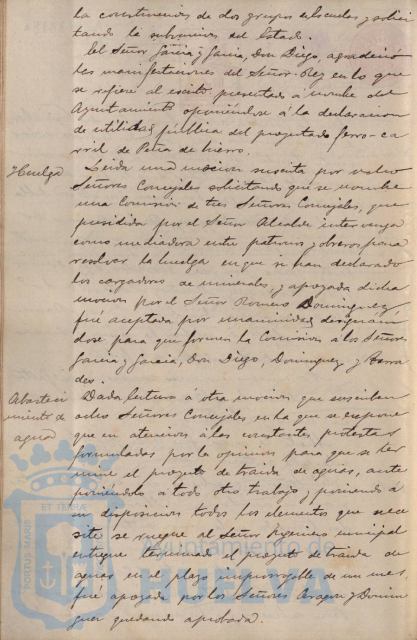 la construccion de dos grupos escolares y solici
tando la subvencion del Estado.
El Señor García y García, Don Diego, agradeció
las manifestaciones del Señor Rey en lo que
se refiere al escrito presentado a nombre del
Ayuntamiento oponiéndose á la declaracion
de utilidad pública del proyectado ferro-ca-
rril de Peña de hierro.
Huelga
Leida una mocion suscrita por varios
Señores Concejales solicitando que se nombre
una Comision de tres Señores Concejales, que
presidida por el Señor Alcalde intervenga
como mediadora entre patronos y obreros para
resolver la huelga en que se han declarado
los cargadores de minerales, y apoyada dicha
mocion por el Señor Romero Dominguez
fué aceptada por unanimidad designán
dose para que formen la Comision á los Señores
García y García, Don Diego, Dominguez y
Abasteci
miento de
aguas
Dada lectura á otra mocion que suscriben
ocho Señores Concejales en la que se expone
que en atencion á las constantes protestas
formuladas por la opinion para que se ter
mine el proyecto de traida de aguas, ante
poniéndolo a todo otro trabajo y poniendo á
su disposicion todos los elementos que nece
site se ruegue al Señor Ingeniero municipal
entregue terminado el proyecto de traida de
aguas en el plazo improrrogable de un mes,
fué apoyada por los Señores Aragon y Domin
guez quedando aprobada.
PORTUS MARIS
ET TERRÆ
Ayuntamiento de
HUELVA